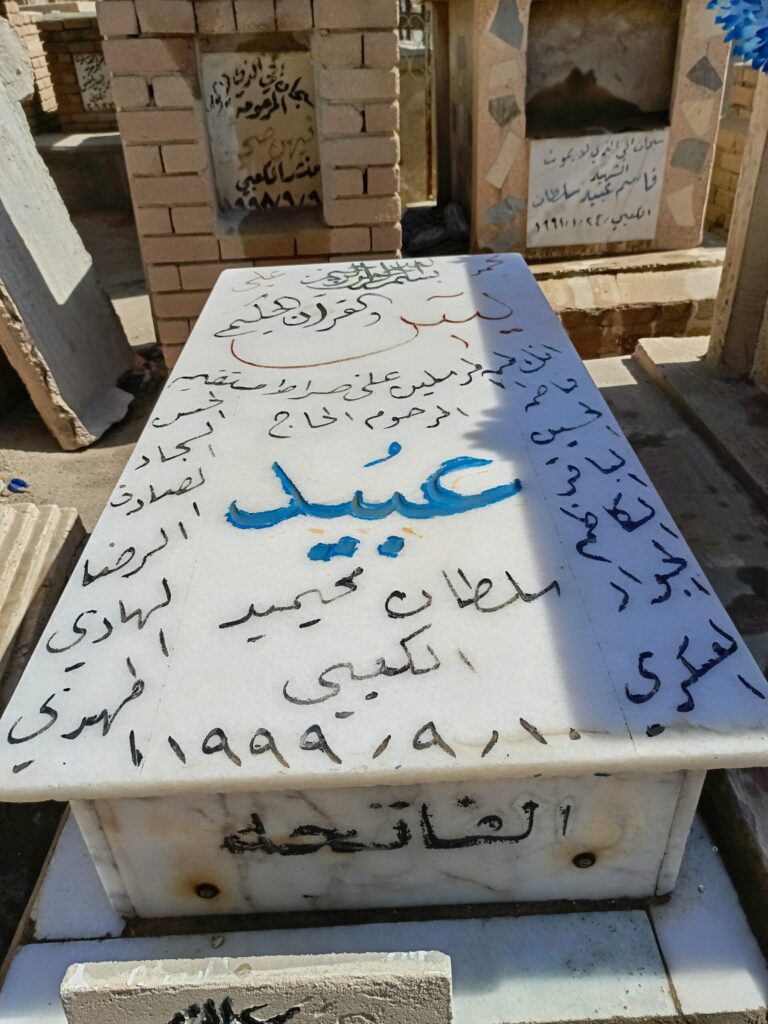 سبحان الحي الذي
المرحومة
منشد الكعبي
١٩٩٨/٩/٩
سبحان الحي القوي لا يموت
الشهيد
قاسم عبيد سلطان
الكعبي ١٩٩١/١/٢٤
بسم الله الرحمن الرحيم
محمد
علي
يس
والقرآن الحكيم
انك لمن المرسلين على صراط مستقيم
المرحوم الحاج
عبيد
سلطان محيميد
الكعبي
١٩٩٩/٩/١٠
الحسن
السجاد
الصادق
الرضا
الهادي
المهدي
فاطمة
الحسين
الباقر
الكاظم
الجواد
العسكري
الفاتحه